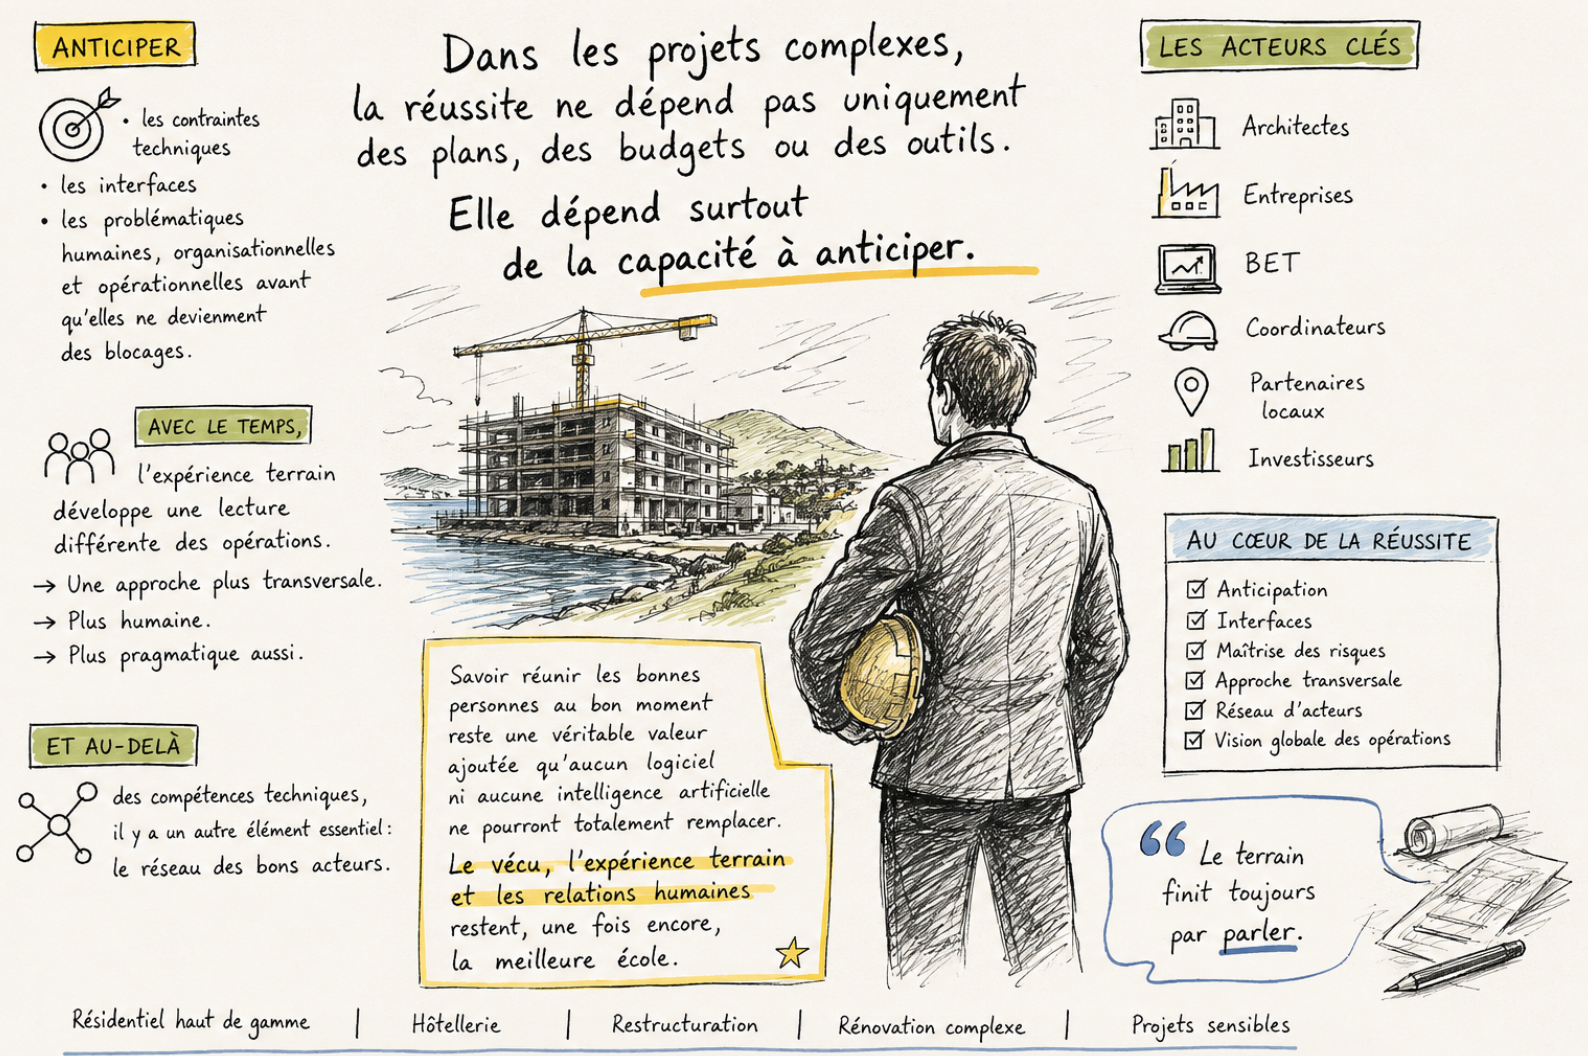 Dans les projets complexes,
la réussite ne dépend pas uniquement
des plans, des budgets ou des outils.
Elle dépend surtout
de la capacité à anticiper.
ANTICIPER
• les contraintes
techniques
• les interfaces
• les problématiques
humaines, organisationnelles
et opérationnelles avant
qu'elles ne deviennent
des blocages.
AVEC LE TEMPS,
l'expérience terrain
développe une lecture
différente des opérations.
→ Une approche plus transversale.
→ Plus humaine.
→ Plus pragmatique aussi.
ET AU-DELÀ
des compétences techniques,
il y a un autre élément essentiel :
le réseau des bons acteurs.
Savoir réunir les bonnes
personnes au bon moment
reste une véritable valeur
ajoutée qu'aucun logiciel
ni aucune intelligence artificielle
ne pourront totalement remplacer.
Le vécu, l'expérience terrain
et les relations humaines
restent, une fois encore,
la meilleure école.
LES ACTEURS CLÉS
Architectes
Entreprises
BET
Coordinateurs
Partenaires
locaux
Investisseurs
AU CŒUR DE LA RÉUSSITE
☑ Anticipation
☑ Interfaces
☑ Maîtrise des risques
☑ Approche transversale
☑ Réseau d'acteurs
☑ Vision globale des opérations
“ Le terrain
finit toujours
par parler.
Résidentiel haut de gamme | Hôtellerie | Restructuration | Rénovation complexe | Projets sensibles